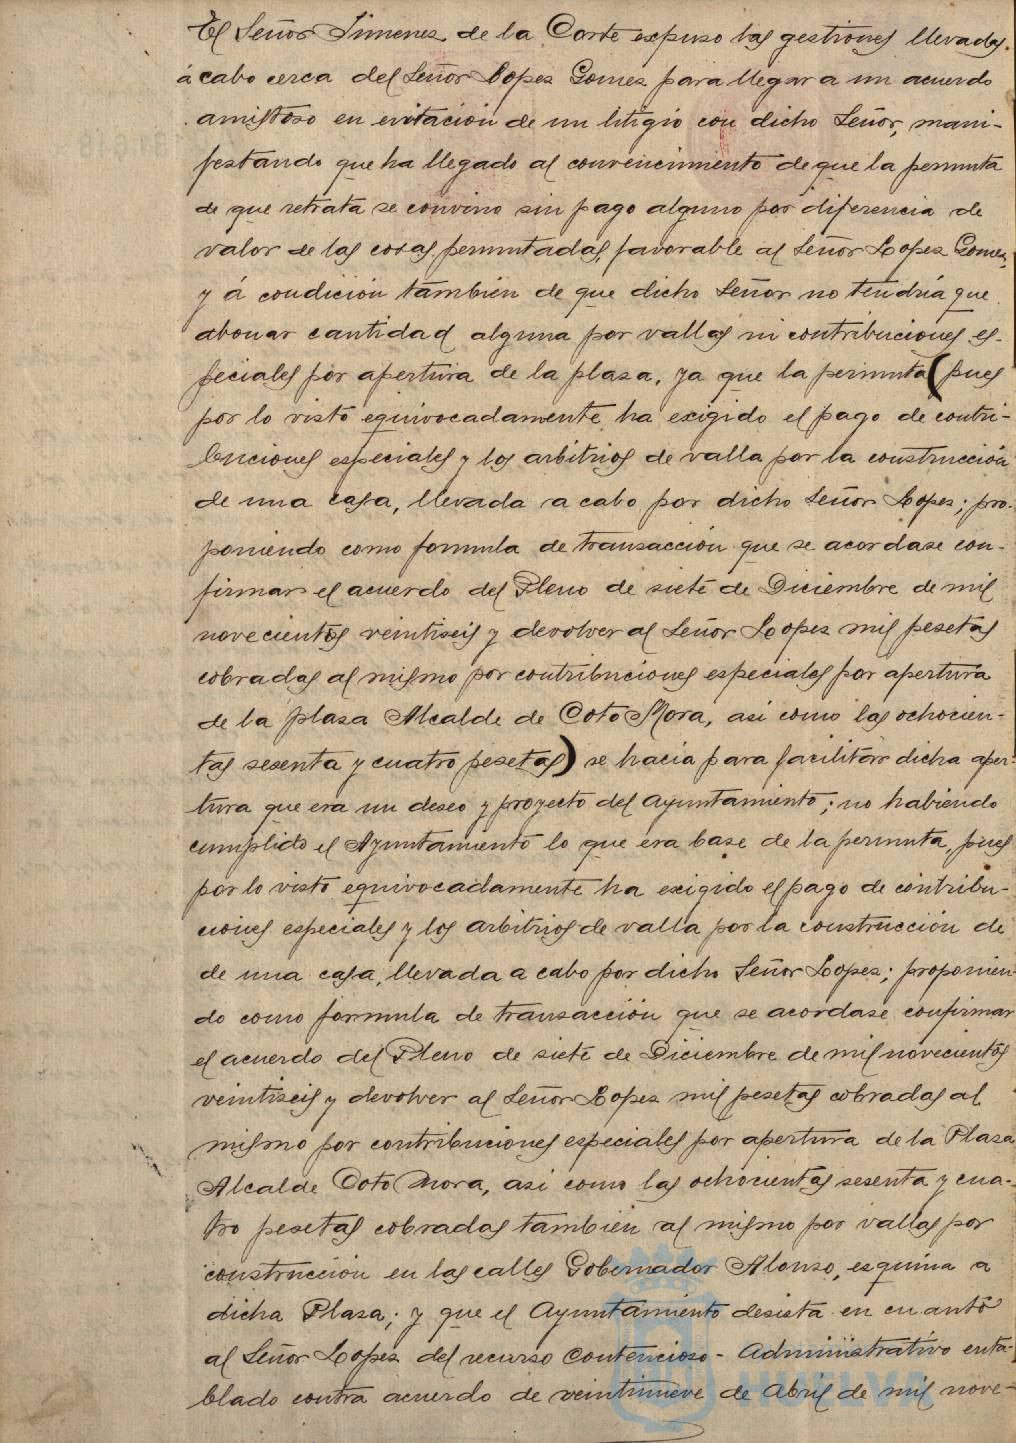 El Señor Jimenez de la Corte expuso las gestiones llevadas
á cabo cerca del Señor Lopez Gomez para llegar a un acuerdo
amistoso en evitación de un litigio con dicho Señor, mani-
festando que ha llegado al convencimiento de que la permuta
de que retrata se convino sin pago alguno por diferencia de
valor de las cosas permutadas, favorable al Señor Lopez Gomez,
y á condición también de que dicho Señor no tendria que
abonar cantidad alguna por vallas ni contribuciones es-
peciales por apertura de la plaza, ya que la permuta (pues
por lo visto equivocadamente ha exigido el pago de contri-
buciones especiales y los arbitrios de valla por la construcción
de una casa, llevada a cabo por dicho Señor Lopez; pro-
poniendo como formula de transacción que se acordase con-
firmar el acuerdo del Pleno de siete de Diciembre de mil
novecientos veintiseis y devolver al Señor Lopez mil pesetas
cobradas al mismo por contribuciones especiales por apertura
de la plaza Alcalde de Coto Mora, asi como las ochocien-
tas sesenta y cuatro pesetas) se hacia para facilitar dicha aper-
tura que era un deseo y proyecto del Ayuntamiento; no habiendo
cumplido el Ayuntamiento lo que era base de la permuta, pues
por lo visto equivocadamente ha exigido el pago de contribu-
ciones especiales y los arbitrios de valla por la construcción de
de una casa, llevada a cabo por dicho Señor Lopez; proponien-
do como formula de transacción que se acordase confirmar
el acuerdo del Pleno de siete de Diciembre de mil novecientos
veintiseis y devolver al Señor Lopez mil pesetas cobradas al
mismo por contribuciones especiales por apertura de la Plaza
Alcalde Coto Mora, asi como las ochocientas sesenta y cua-
tro pesetas cobradas también al mismo por vallas por
construcción en las calles Gobernador Alonso, esquina a
dicha Plaza; y que el Ayuntamiento desista en cuanto
al Señor Lopez del recurso Contencioso-Administrativo enta-
blado contra acuerdo de veintinueve de Abril de mil nove-
HUELVA